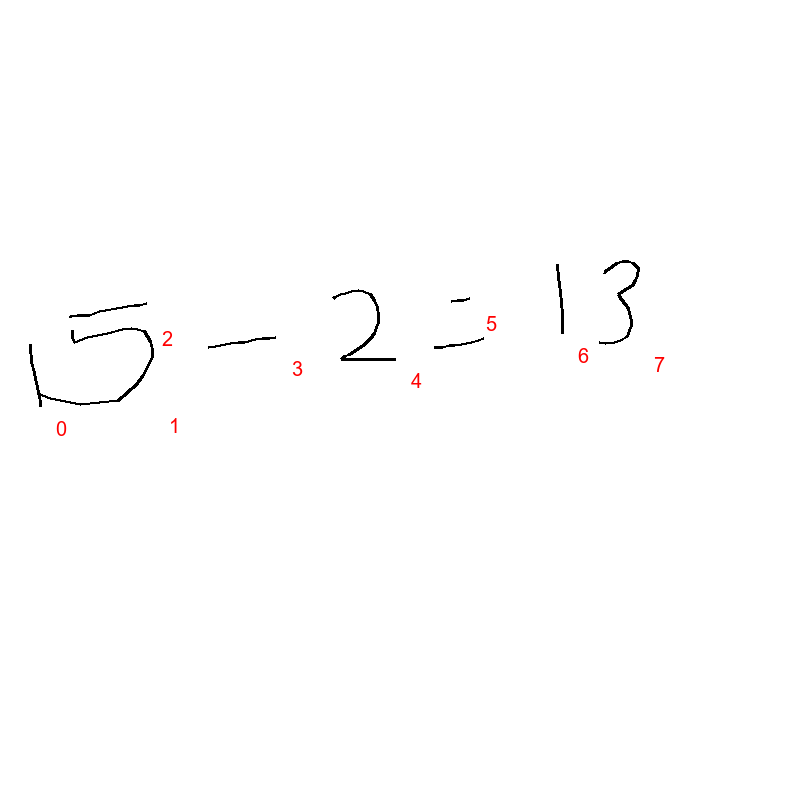 15 - 2 = 13
0 1 2 3 4 5 6 7